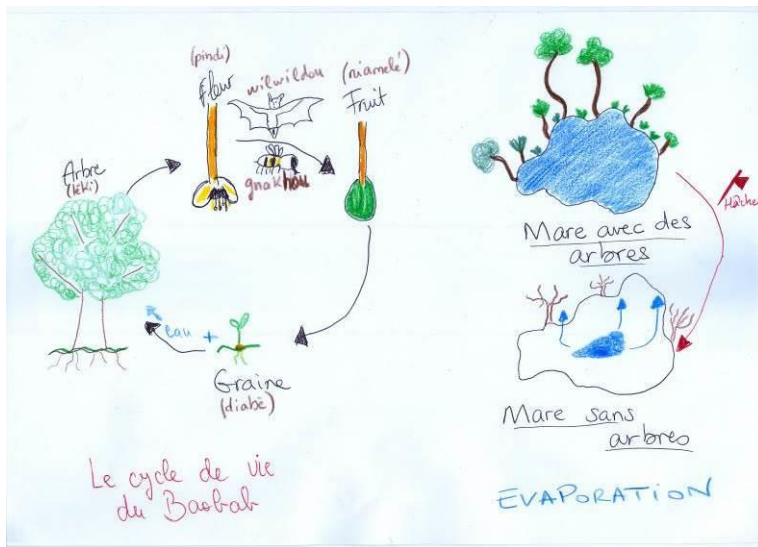 (pindi)
Fleur
wilwildou
(niamelé)
Fruit
gnakhou
Arbre
(kki)
eau +
Graine
(diabë)
Le cycle de vie
du Baobab
Mare avec des
arbres
Hâche
Mare sans
arbres
EVAPORATION